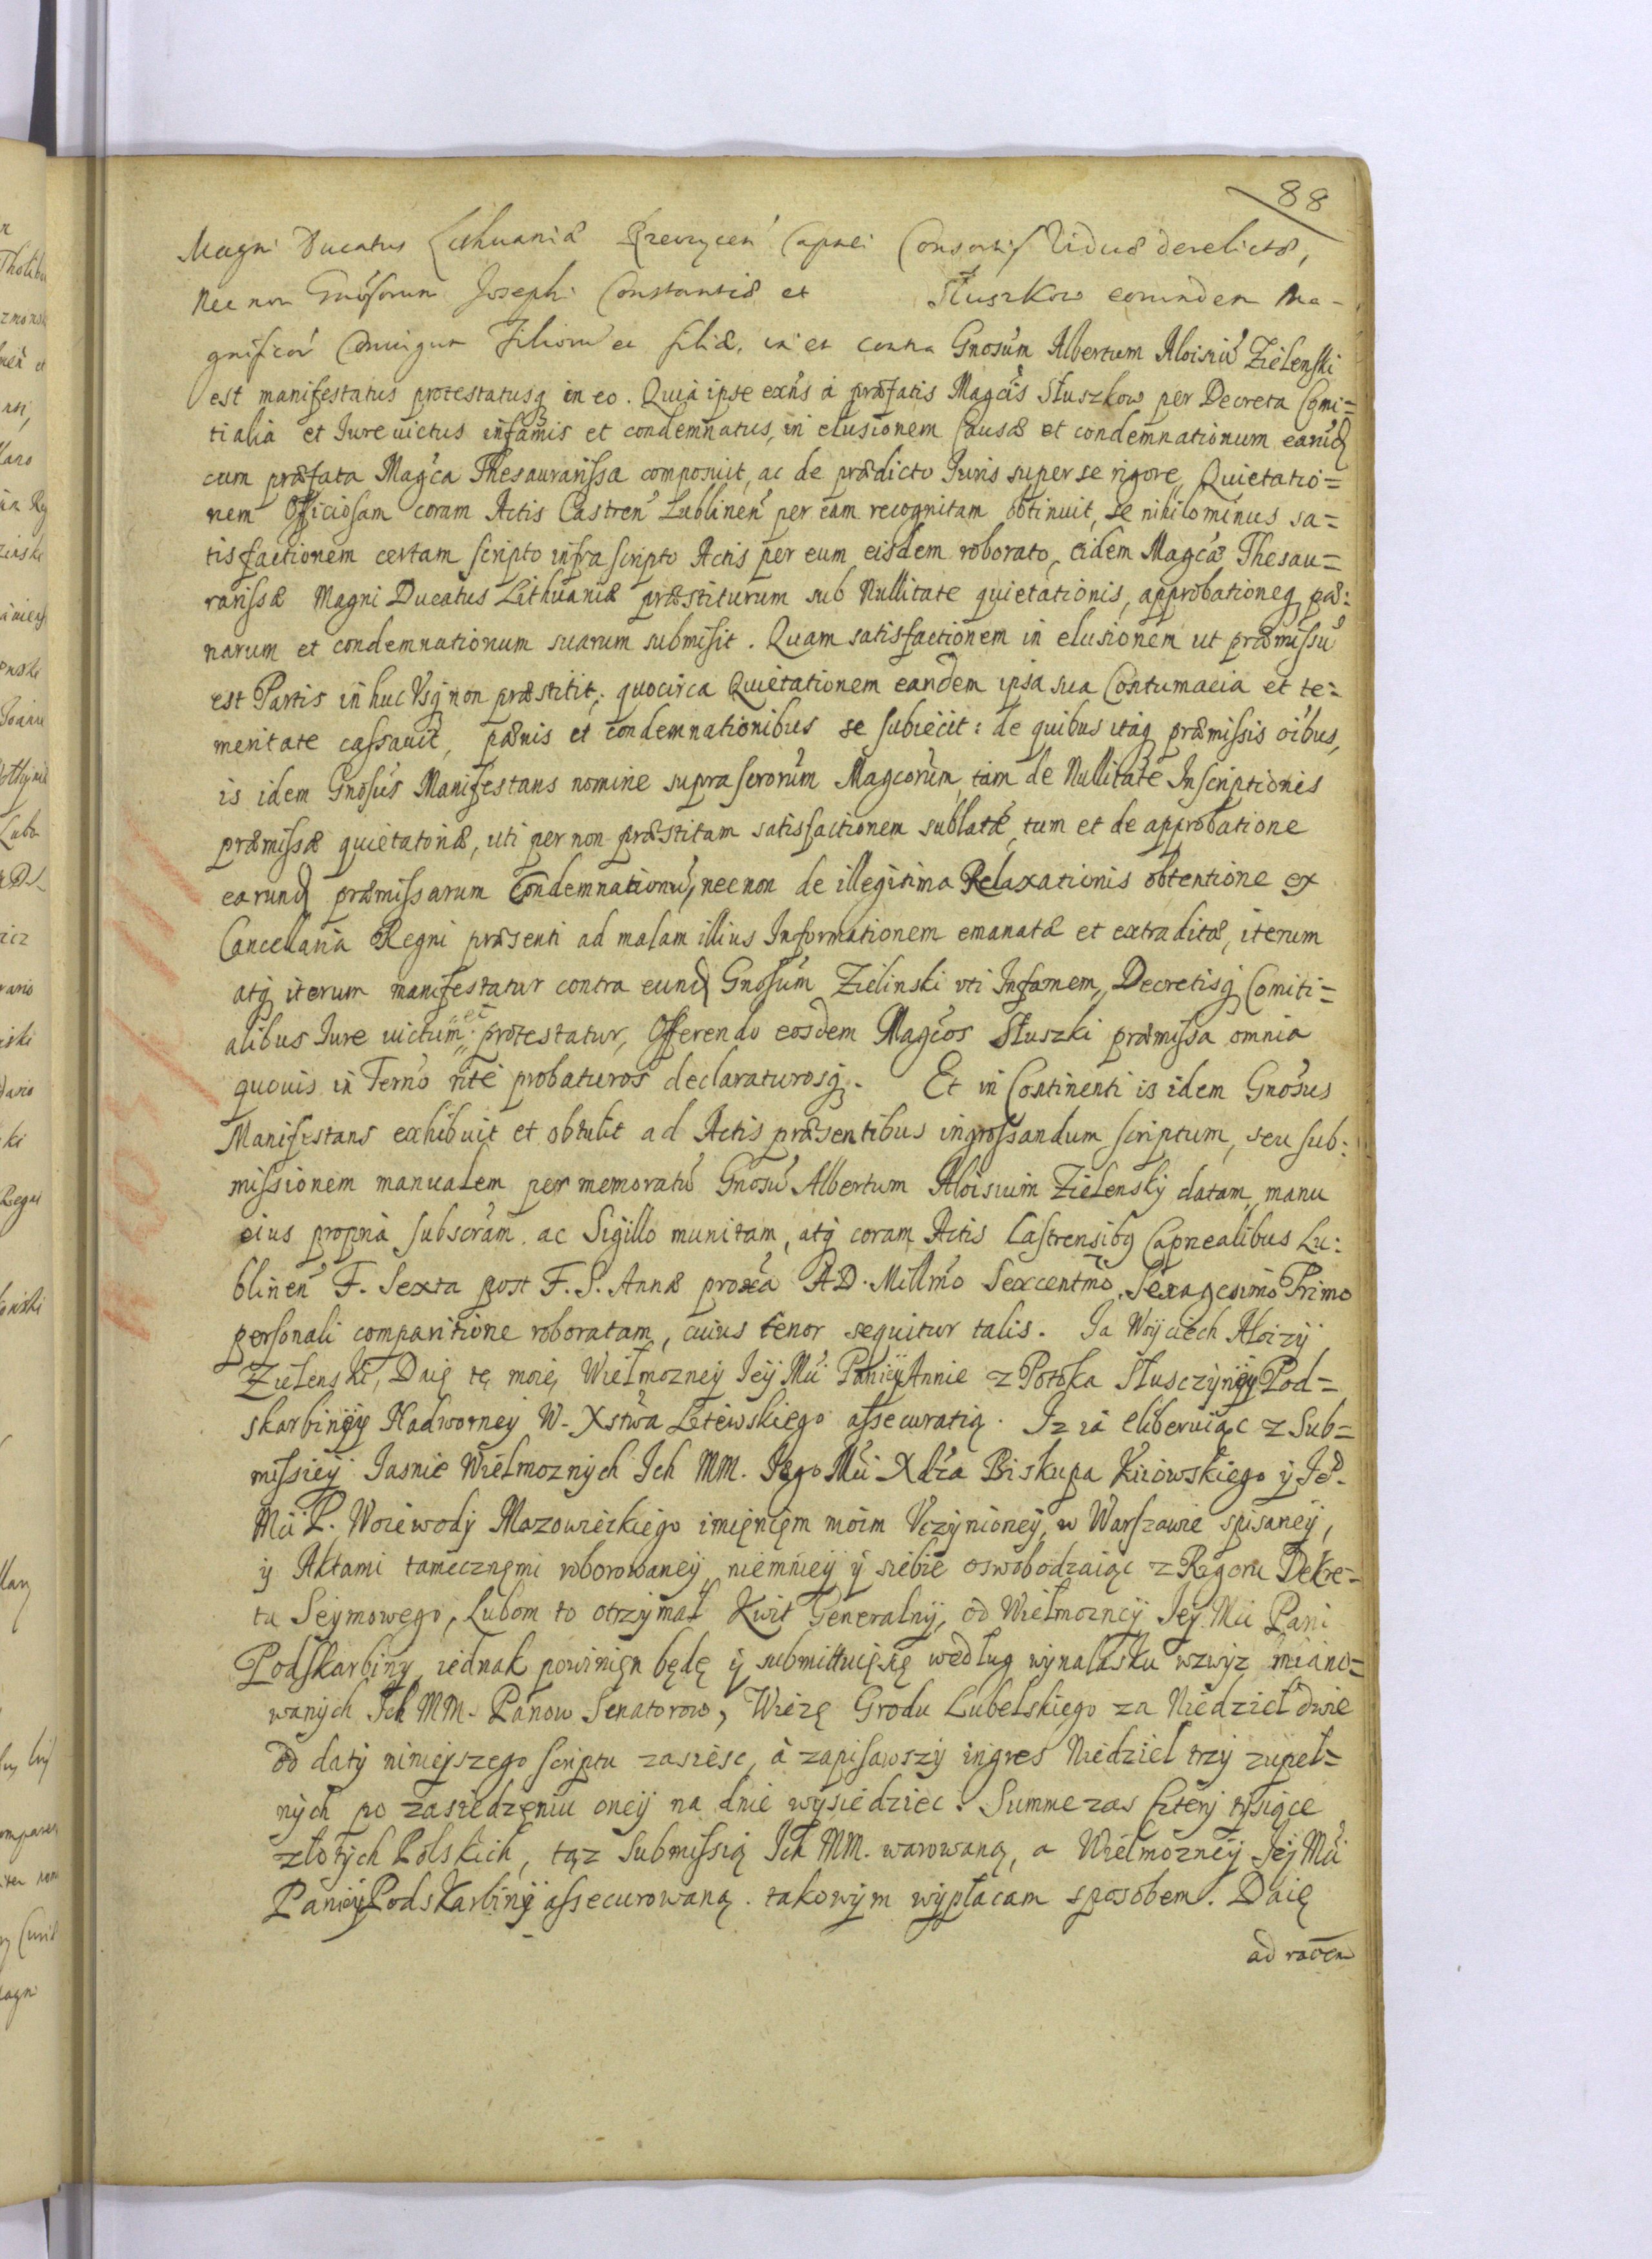 88
Magni Ducatus Lithuaniæ Rzeczycen Capnei Consortis Viduæ derelictæ,
nec non Gnosorum Josephi Constantiæ et Słuszkow eorundem Ma-
gnificor Coniugum Filiorum ac filiæ, in et contra Gnosum Albertum Aloisiu Zielenski
est manifestatus protestatusq in eo. Quia ipse exns a præfatis Magcis Słuszkow per Decreta Comi=
tialia et Jure victus infamis et condemnatus, in elusionem Causæ et condemnationum earund
cum præfata Magca Thesaurarissa composuit, ac de prædicto Juris super se rigore, Quietatio=
nem Officiosam coram Actis Castren Lublinen per eam recognitam obtinuit, se nihilominus sa=
tisfactionem certam scripto infra scripto Actis per eum eisdem roborato, eidem Magcæ Thesau=
rarissæ Magni Ducatus Lithuaniæ præstiturum sub Nullitate quietationis, approbationeq pæ:
narum et condemnationum suarum submisit. Quam satisfactionem in elusionem ut præmissu
est Partis in huc Vsq non præstitit; quocirca Quietationem eandem ipsa sua Contumacia et te=
meritate cassavit, pænis et condemnationibus se subiecit: de quibus itaq præmissis oibus,
is idem Gnosus Manifestans nomine supra scrorum Magcorum, tam de Nullitate Inscriptionis
præmissæ quietatoriæ, uti per non præstitam satisfactionem sublatæ, tum et de approbatione
earund præmissarum Condemnationu, nec non de illegitima Relaxationis obtentione ex
Cancellaria Regni præsenti ad malam illius Informationem emanatæ et extraditæ, iterum
atq iterum manifestatur contra eund Gnosum Zielinski uti Infamem, Decretisq Comiti=
alibus Jure victum, et protestatur, Offerendo eosdem Magcos Słuszki præmissa omnia
quovis in Termo rite probaturos declaraturosq. Et in Continenti is idem Gnosus
Manifestans exhibuit et obtulit ad Actis præsentibus ingrossandum scriptum, seu sub:
missionem manualem per memoratu Gnosu Albertum Aloisium Zielensky datam, manu
eius propria subscram ac Sigillo munitam, atq coram Actis Castrensibq Capnealibus Lu:
blinen F. Sexta post F. S. Annæ proxa A D. Millmo Sexcentmo Sexagesimo Primo
personali comparitione roboratam, cuius tenor sequitur talis. Ja Woyciech Aloizy
Zielenski, Daię tę moię Wielmozney Jey Mci Paniey Annie z Potoka Słusczyney Pod=
skarbiney Nadworney W. Xstwa Litewskiego assecuratią. Iz ia eliberuiąc z Sub=
missiey Jasnie Wielmoznych Ich MM. Jego Mci Xdza Biskupa Kiiowskiego y Je°
Mci P. Woiewody Mazowieckiego imięnięm moim Vczynioney, w Warszawie spisaney,
y Aktami tamecznęmi roborowaney, niemniey y siebie oswobodzaiąc z Rigoru Dekre=
tu Seymowego, Lubom to otrzymał Kwit Generalny, od Wielmozney Jey Mci Pani
Podskarbiny, iednak powinięn będę y submittuięsię według wynalasku wzwyz miano=
wanych Ich MM. Panow Senatorow, Wiezę Grodu Lubelskiego za Niedziel dwie
od daty ninieyszego scriptu zasiesc, a zapisawszy ingres Niedziel trzy zupeł=
nych po zasiedzęniu oney na dnie wysiedziec. Summe zas Cztery tysiące
złotych Polskich, tąz Submissią Ich MM. warowaną, a Wielmozney Jey Mci
Paniey Podskarbiny assecurowaną. takowym wypłacam sposobem. Daię
ad racem